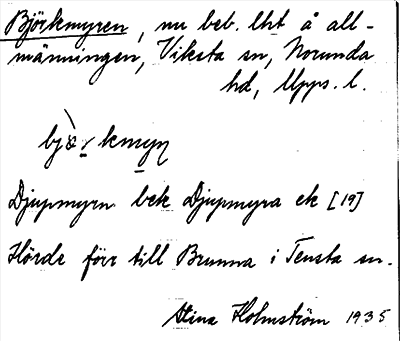 Björkmyren, nu beb. lht å all-
männingen, Viksta sn, Norunda
hd, Upps. l.
Djupmyrn bek Djupmyra ek [19]
Hörde förr till Brunna i Tensta sn.
Stina Holmström 1935